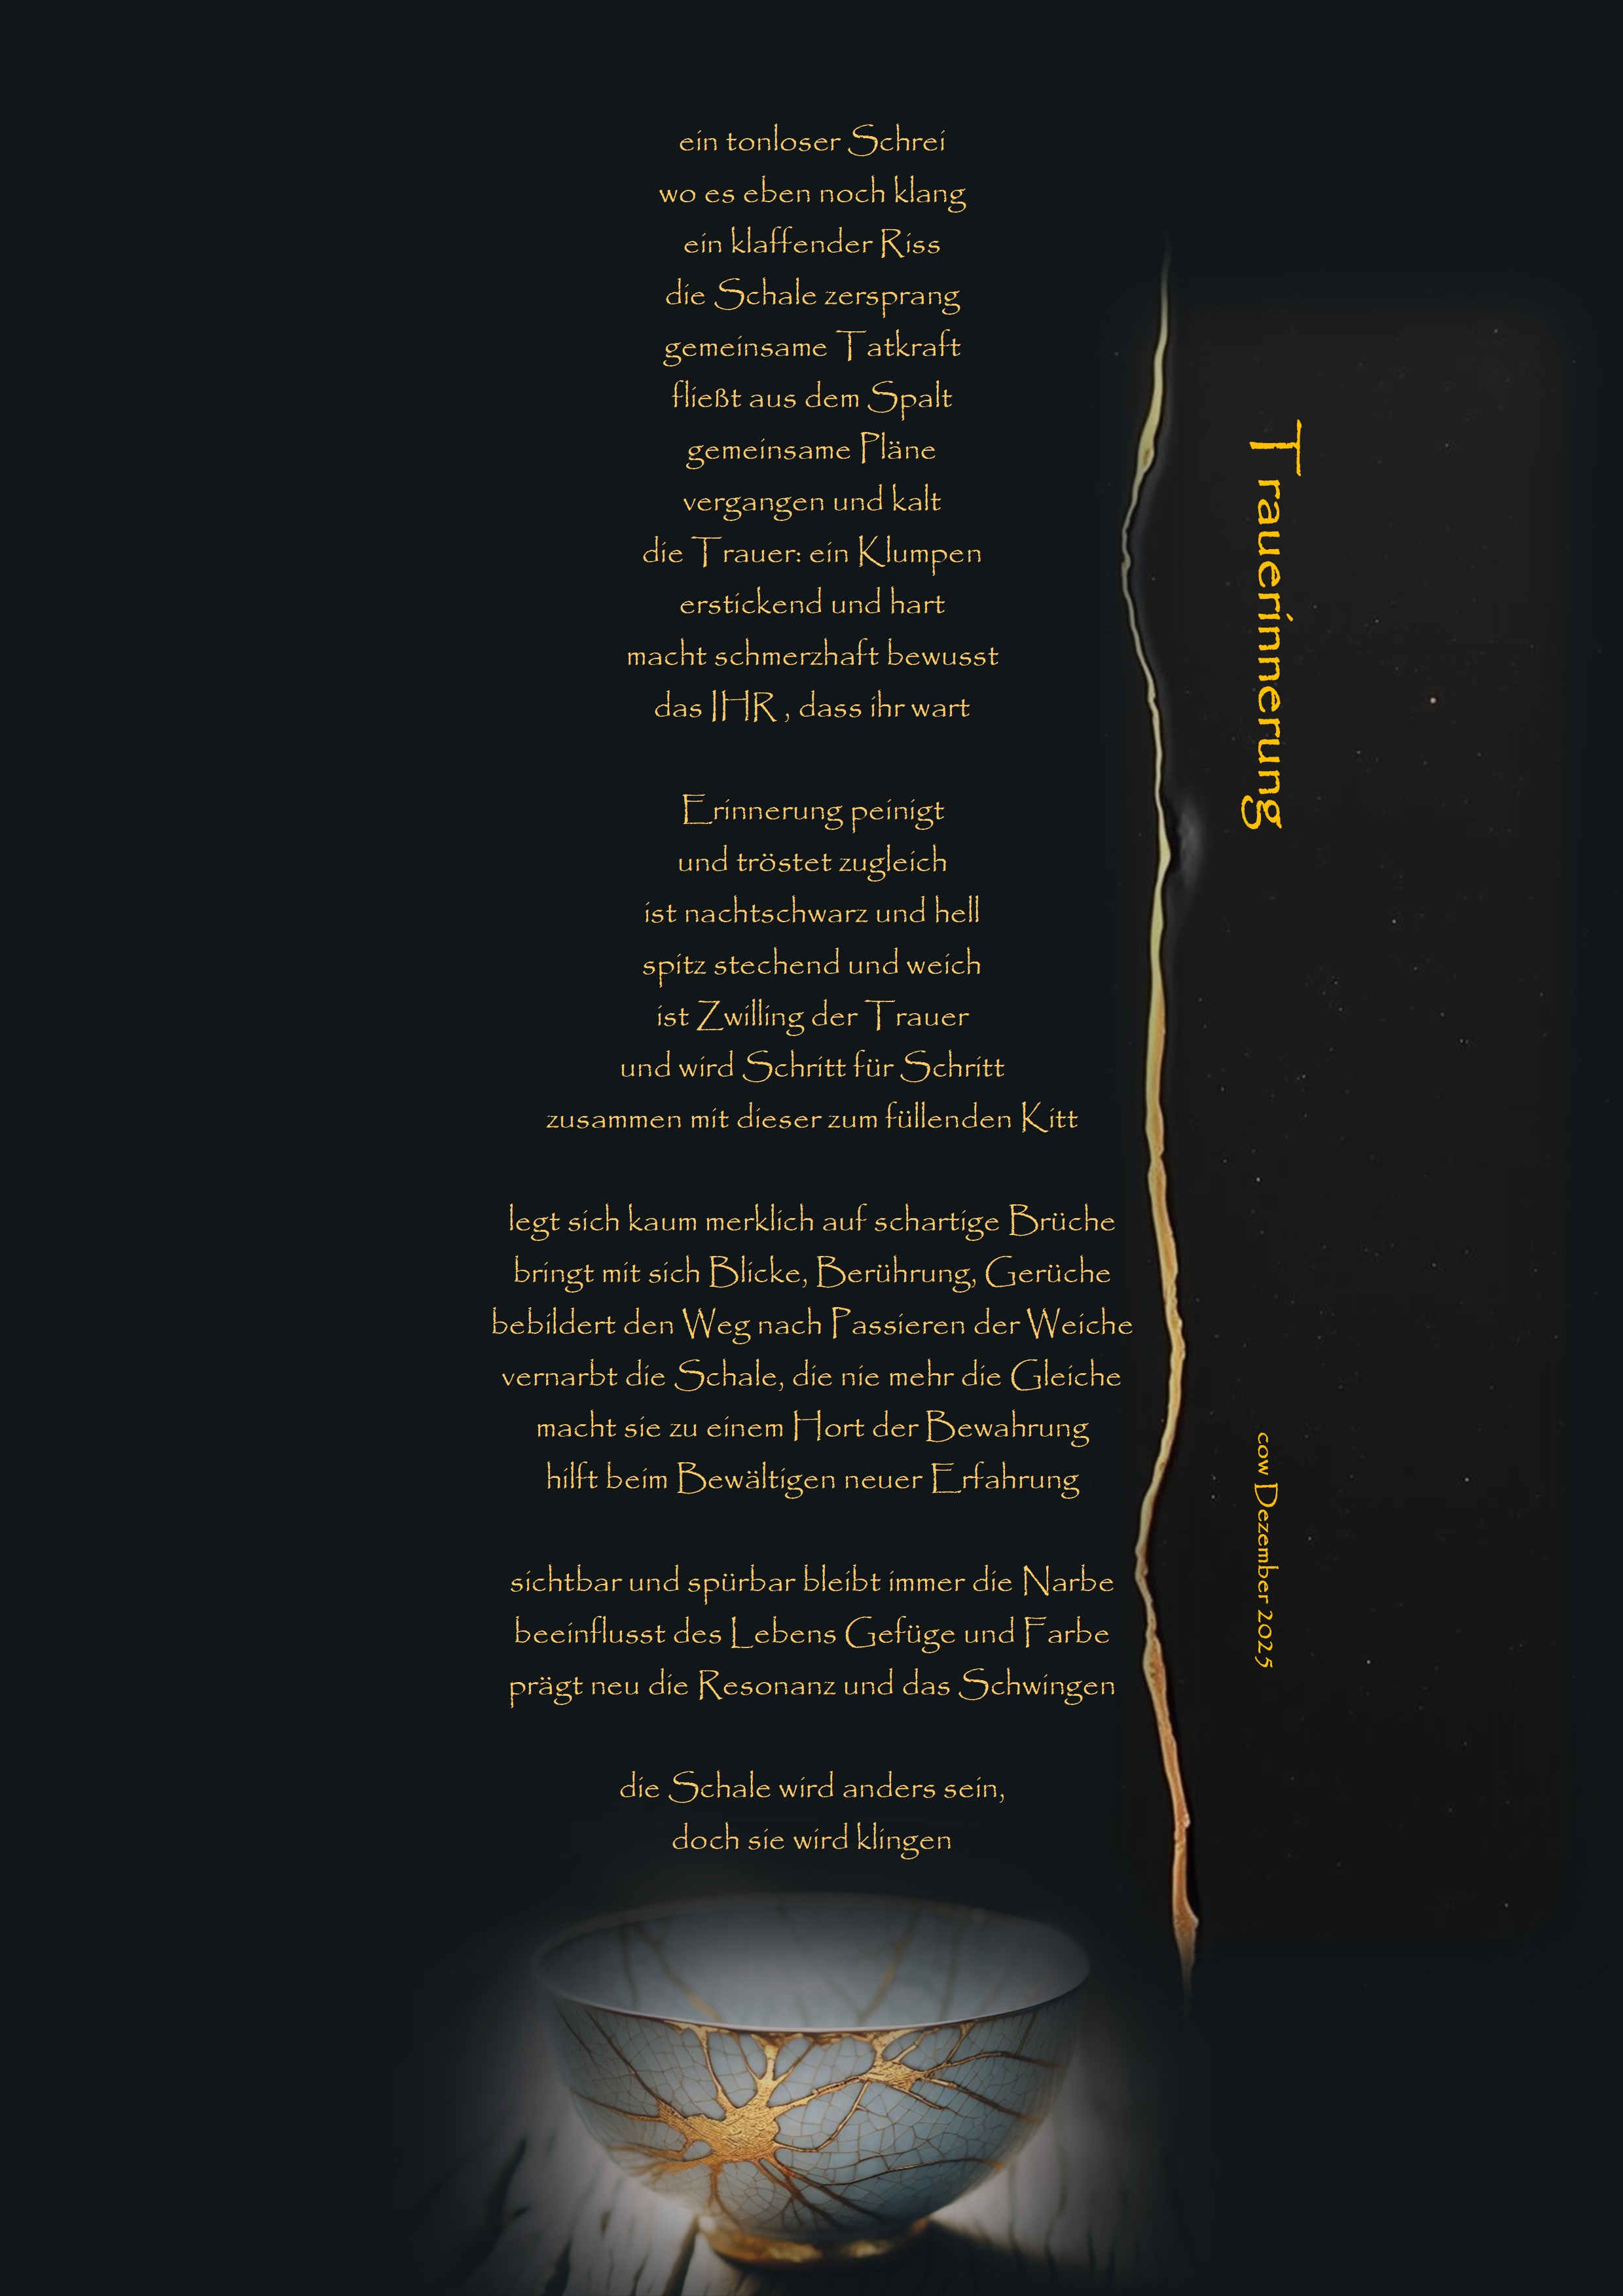 ein tonloser Schrei
wo es eben noch klang
ein klaffender Riss
die Schale zersprang
gemeinsame Tatkraft
fließt aus dem Spalt
gemeinsame Pläne
vergangen und kalt
die Trauer: ein Klumpen
erstickend und hart
macht schmerzhaft bewusst
das IHR , dass ihr wart
Erinnerung peinigt
und tröstet zugleich
ist nachtschwarz und hell
spitz stechend und weich
ist Zwilling der Trauer
und wird Schritt für Schritt
zusammen mit dieser zum füllenden Kitt
legt sich kaum merklich auf schartige Brüche
bringt mit sich Blicke, Berührung, Gerüche
bebildert den Weg nach Passieren der Weiche
vernarbt die Schale, die nie mehr die Gleiche
macht sie zu einem Hort der Bewahrung
hilft beim Bewältigen neuer Erfahrung
sichtbar und spürbar bleibt immer die Narbe
beeinflusst des Lebens Gefüge und Farbe
prägt neu die Resonanz und das Schwingen
die Schale wird anders sein,
doch sie wird klingen
Trauerinnerung
cow Dezember 2025